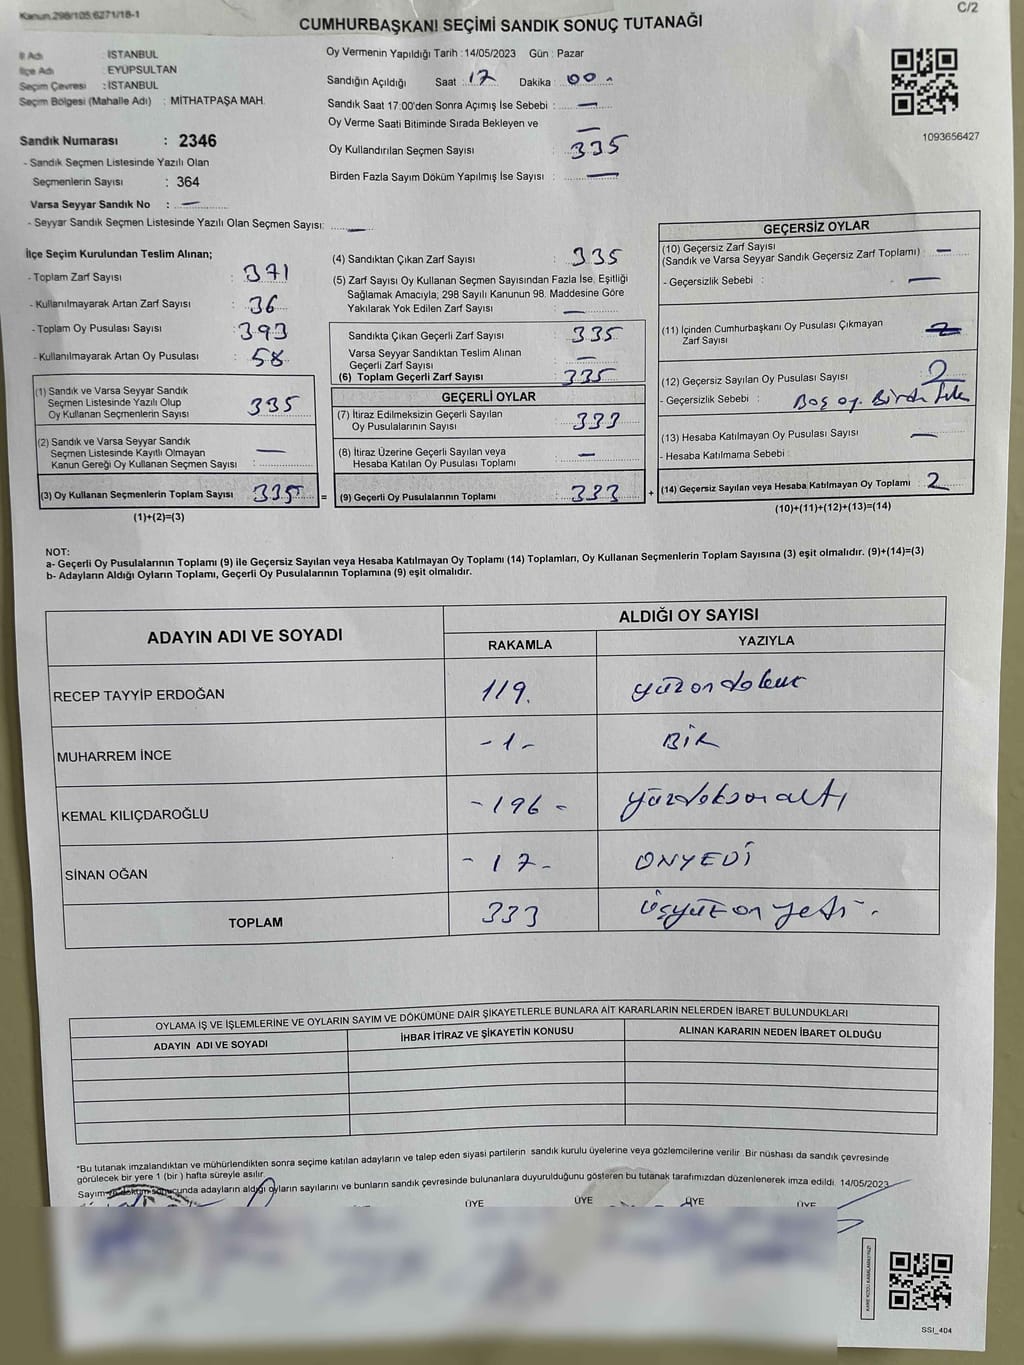 Kanun.298/105.6271/18-1
C/2
CUMHURBAŞKANI SEÇİMİ SANDIK SONUÇ TUTANAĞI
İl Adı : İSTANBUL
İlçe Adı : EYÜPSULTAN
Seçim Çevresi : İSTANBUL
Seçim Bölgesi (Mahalle Adı) : MİTHATPAŞA MAH.
Sandık Numarası : 2346
- Sandık Seçmen Listesinde Yazılı Olan
Seçmenlerin Sayısı : 364
Varsa Seyyar Sandık No : —
- Seyyar Sandık Seçmen Listesinde Yazılı Olan Seçmen Sayısı: —
Oy Vermenin Yapıldığı Tarih :14/05/2023 Gün : Pazar
Sandığın Açıldığı Saat : 17 Dakika : 00
Sandık Saat 17:00'den Sonra Açımış İse Sebebi : —
Oy Verme Saati Bitiminde Sırada Bekleyen ve —
Oy Kullandırılan Seçmen Sayısı : 335
Birden Fazla Sayım Döküm Yapılmış İse Sayısı : —
1093656427
İlçe Seçim Kurulundan Teslim Alınan;
- Toplam Zarf Sayısı : 371
- Kullanılmayarak Artan Zarf Sayısı : 36
- Toplam Oy Pusulası Sayısı : 393
- Kullanılmayarak Artan Oy Pusulası : 58
(1) Sandık ve Varsa Seyyar Sandık
Seçmen Listesinde Yazılı Olup
Oy Kullanan Seçmenlerin Sayısı : 335
(2) Sandık ve Varsa Seyyar Sandık
Seçmen Listesinde Kayıtlı Olmayan
Kanun Gereği Oy Kullanan Seçmen Sayısı : —
(3) Oy Kullanan Seçmenlerin Toplam Sayısı : 335 =
(1)+(2)=(3)
(4) Sandıktan Çıkan Zarf Sayısı : 335
(5) Zarf Sayısı Oy Kullanan Seçmen Sayısından Fazla İse, Eşitliği
Sağlamak Amacıyla, 298 Sayılı Kanunun 98. Maddesine Göre
Yakılarak Yok Edilen Zarf Sayısı : —
Sandıkta Çıkan Geçerli Zarf Sayısı : 335
Varsa Seyyar Sandıktan Teslim Alınan
Geçerli Zarf Sayısı : —
(6) Toplam Geçerli Zarf Sayısı : 335
GEÇERLİ OYLAR
(7) İtiraz Edilmeksizin Geçerli Sayılan
Oy Pusulalarının Sayısı : 333
(8) İtiraz Üzerine Geçerli Sayılan veya
Hesaba Katılan Oy Pusulası Toplamı : —
(9) Geçerli Oy Pusulalarının Toplamı : 333 +
GEÇERSİZ OYLAR
(10) Geçersiz Zarf Sayısı
(Sandık ve Varsa Seyyar Sandık Geçersiz Zarf Toplamı) : —
- Geçersizlik Sebebi : —
(11) İçinden Cumhurbaşkanı Oy Pusulası Çıkmayan
Zarf Sayısı : 2
(12) Geçersiz Sayılan Oy Pusulası Sayısı : 2
- Geçersizlik Sebebi : Boş oy. Birden
(13) Hesaba Katılmayan Oy Pusulası Sayısı : —
- Hesaba Katılmama Sebebi :
(14) Geçersiz Sayılan veya Hesaba Katılmayan Oy Toplamı : 2
(10)+(11)+(12)+(13)=(14)
NOT:
a- Geçerli Oy Pusulalarının Toplamı (9) ile Geçersiz Sayılan veya Hesaba Katılmayan Oy Toplamı (14) Toplamları, Oy Kullanan Seçmenlerin Toplam Sayısına (3) eşit olmalıdır. (9)+(14)=(3)
b- Adayların Aldığı Oyların Toplamı, Geçerli Oy Pusulalarının Toplamına (9) eşit olmalıdır.
ADAYIN ADI VE SOYADI ALDIĞI OY SAYISI
RAKAMLA YAZIYLA
RECEP TAYYİP ERDOĞAN 119. yüzondokuz
MUHARREM İNCE -1- BİR
KEMAL KILIÇDAROĞLU -196- yüzdoksanaltı
SİNAN OĞAN -17- ONYEDİ
TOPLAM 333 üçyüzonyedi.
OYLAMA İŞ VE İŞLEMLERİNE VE OYLARIN SAYIM VE DÖKÜMÜNE DAİR ŞİKAYETLERLE BUNLARA AİT KARARLARIN NELERDEN İBARET BULUNDUKLARI
ADAYIN ADI VE SOYADI İHBAR İTİRAZ VE ŞİKAYETİN KONUSU ALINAN KARARIN NEDEN İBARET OLDUĞU
*Bu tutanak imzalandıktan ve mühürlendikten sonra seçime katılan adayların ve talep eden siyasi partilerin sandık kurulu üyelerine veya gözlemcilerine verilir. Bir nüshası da sandık çevresinde
görülecek bir yere 1 (bir ) hafta süreyle asılır.
Sayım ve döküm sonucunda adayların aldığı oyların sayılarını ve bunların sandık çevresinde bulunanlara duyurulduğunu gösteren bu tutanak tarafımızdan düzenlenerek imza edildi. 14/05/2023
ÜYE ÜYE ÜYE ÜYE
SSI_404